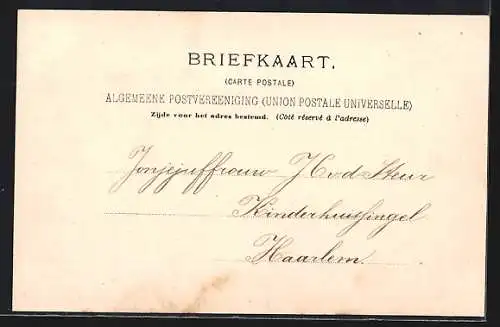 BRIEFKAART.
(CARTE POSTALE)
ALGEMEENE POSTVEREENIGING (UNION POSTALE UNIVERSELLE)
Zijde voor het adres bestemd. (Côté réservé à l'adresse)
Jonjejuffrouw J C v d Steur
Kinderhuissingel
Haarlem.